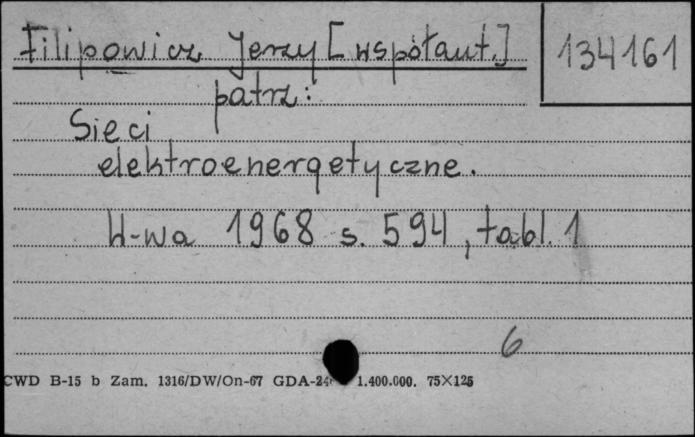 Filipowicz Jerzy [współaut.]
134161
patrz:
Sieci
elektroenergetyczne.
W-wa 1968 s. 594, tabl. 1
6
CWD B-15 b Zam. 1316/DW/On-67 GDA-24 1.400.000. 75×125